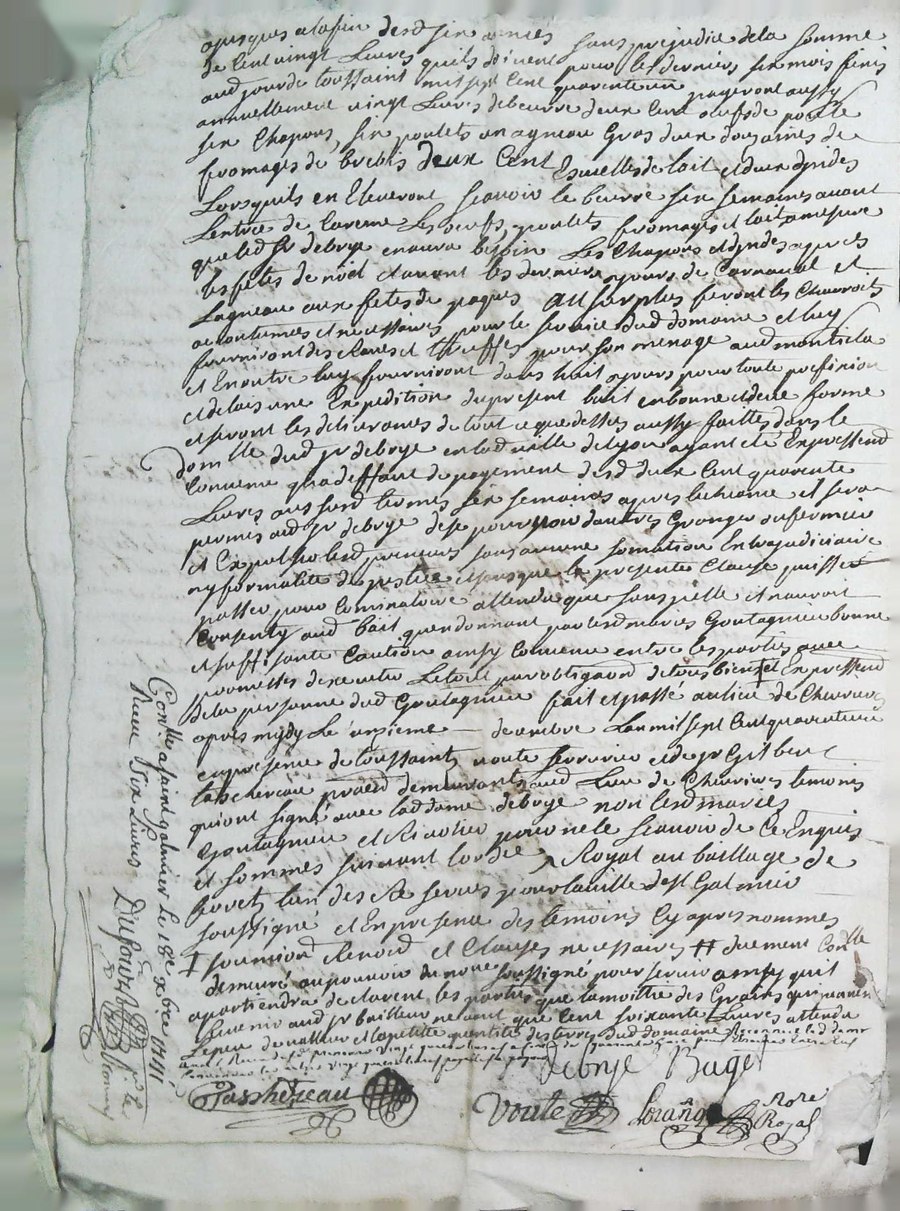 jusques a la fin desd six années sans prejudice de la somme
de Cent vingt Livres quils doivent pour les derniers six mois finis
aud jour de toussaint mil sept Cent quarente un payeront aussy
annuellement vingt Livres de beurre deux Cent oeufs de poulle
six Chapons, six poulets un agneau Gras deux douzaines de
fromages de brebis deux Cent Escuelles de lait et deux dindes
Lorsquils en Eleveront scavoir le beurre six semaines avant
Lentrée de Lavent Les oeufs, poulets fromages et lait a mesure
que led sr debrye en aura besoin Les Chapons et dindes apres
les fêtes de noël et avant les derniers jours de Carnaval et
Lagneau aux fêtes de paques au surplus feront les Charrois
accoutumés et necessaires pour le service dud domaine et luy
fourniront des raves et truffes pour son menage aud
et En outre luy fourniront dans huit jours pour toute prefixion
et delais une Expedition du present bail en bonne et deue forme
et seront les delivrances de tout ce que dessus aussy faittes dans le
domlle dud sr debrye en lad ville de Lyon ayant eté Expressemt
Convenu qua deffaut de payement desd deux Cent quarente
Livres aussurd termes six semaines apres lecheance il sera
permis aud sr debrye de se pourvoir dautres Granger ou fermier
et Expulser lesd preneurs sans aucune somation Extrajudiciaire
ny formalité de justice et sans que la presente Clause puisse
passer pour Comminatoire attendu que sans icelle il nauroit
Consenty aud bail quen donnant par lesd mariés Goutagnieu bonne
et suffisante Caution ainsy Convenu entre les parties avec
promesses dexecuter Le tout par obligaon de tous biens et Expressemt
de la personne dud Goutagnieu fait et passé au lieu de Chevrieres
apres mydy Le onzieme decembre Lan mil sept Cent quarente un
en presence de toussaint voute serrurier et de sr Gilbert
tachereau pratd demeurants aud Lieu de Chevrieres temoins
qui ont signé avec lad dame debrye non lesd mariés
Goutagnieu et pour ne le scavoir de Ce Enquis
et sommés suivant Lordce Royal au bailliage de
forest lun des reservés pour la ville de st Galmier
soussigné et En presence des temoins Cy apres nommes
‡ soumision Renond et Clauses necessaires ‡‡ duement Conlle
demeuré au pouvoir du nore soussigné pour servir ainsy quil
apartiendra declarent les parties que la moittié des Grains qui
revenir aud sr bailleur ne vaut que Cent soixante Livres attendu
Le peu de valleur et la petite quantité des terres dud domaine
debrye Buget
Paschereau
Voute
Nore
Royal
Conlle a saint galmier le 18e xbre 1741
Receu six Livres